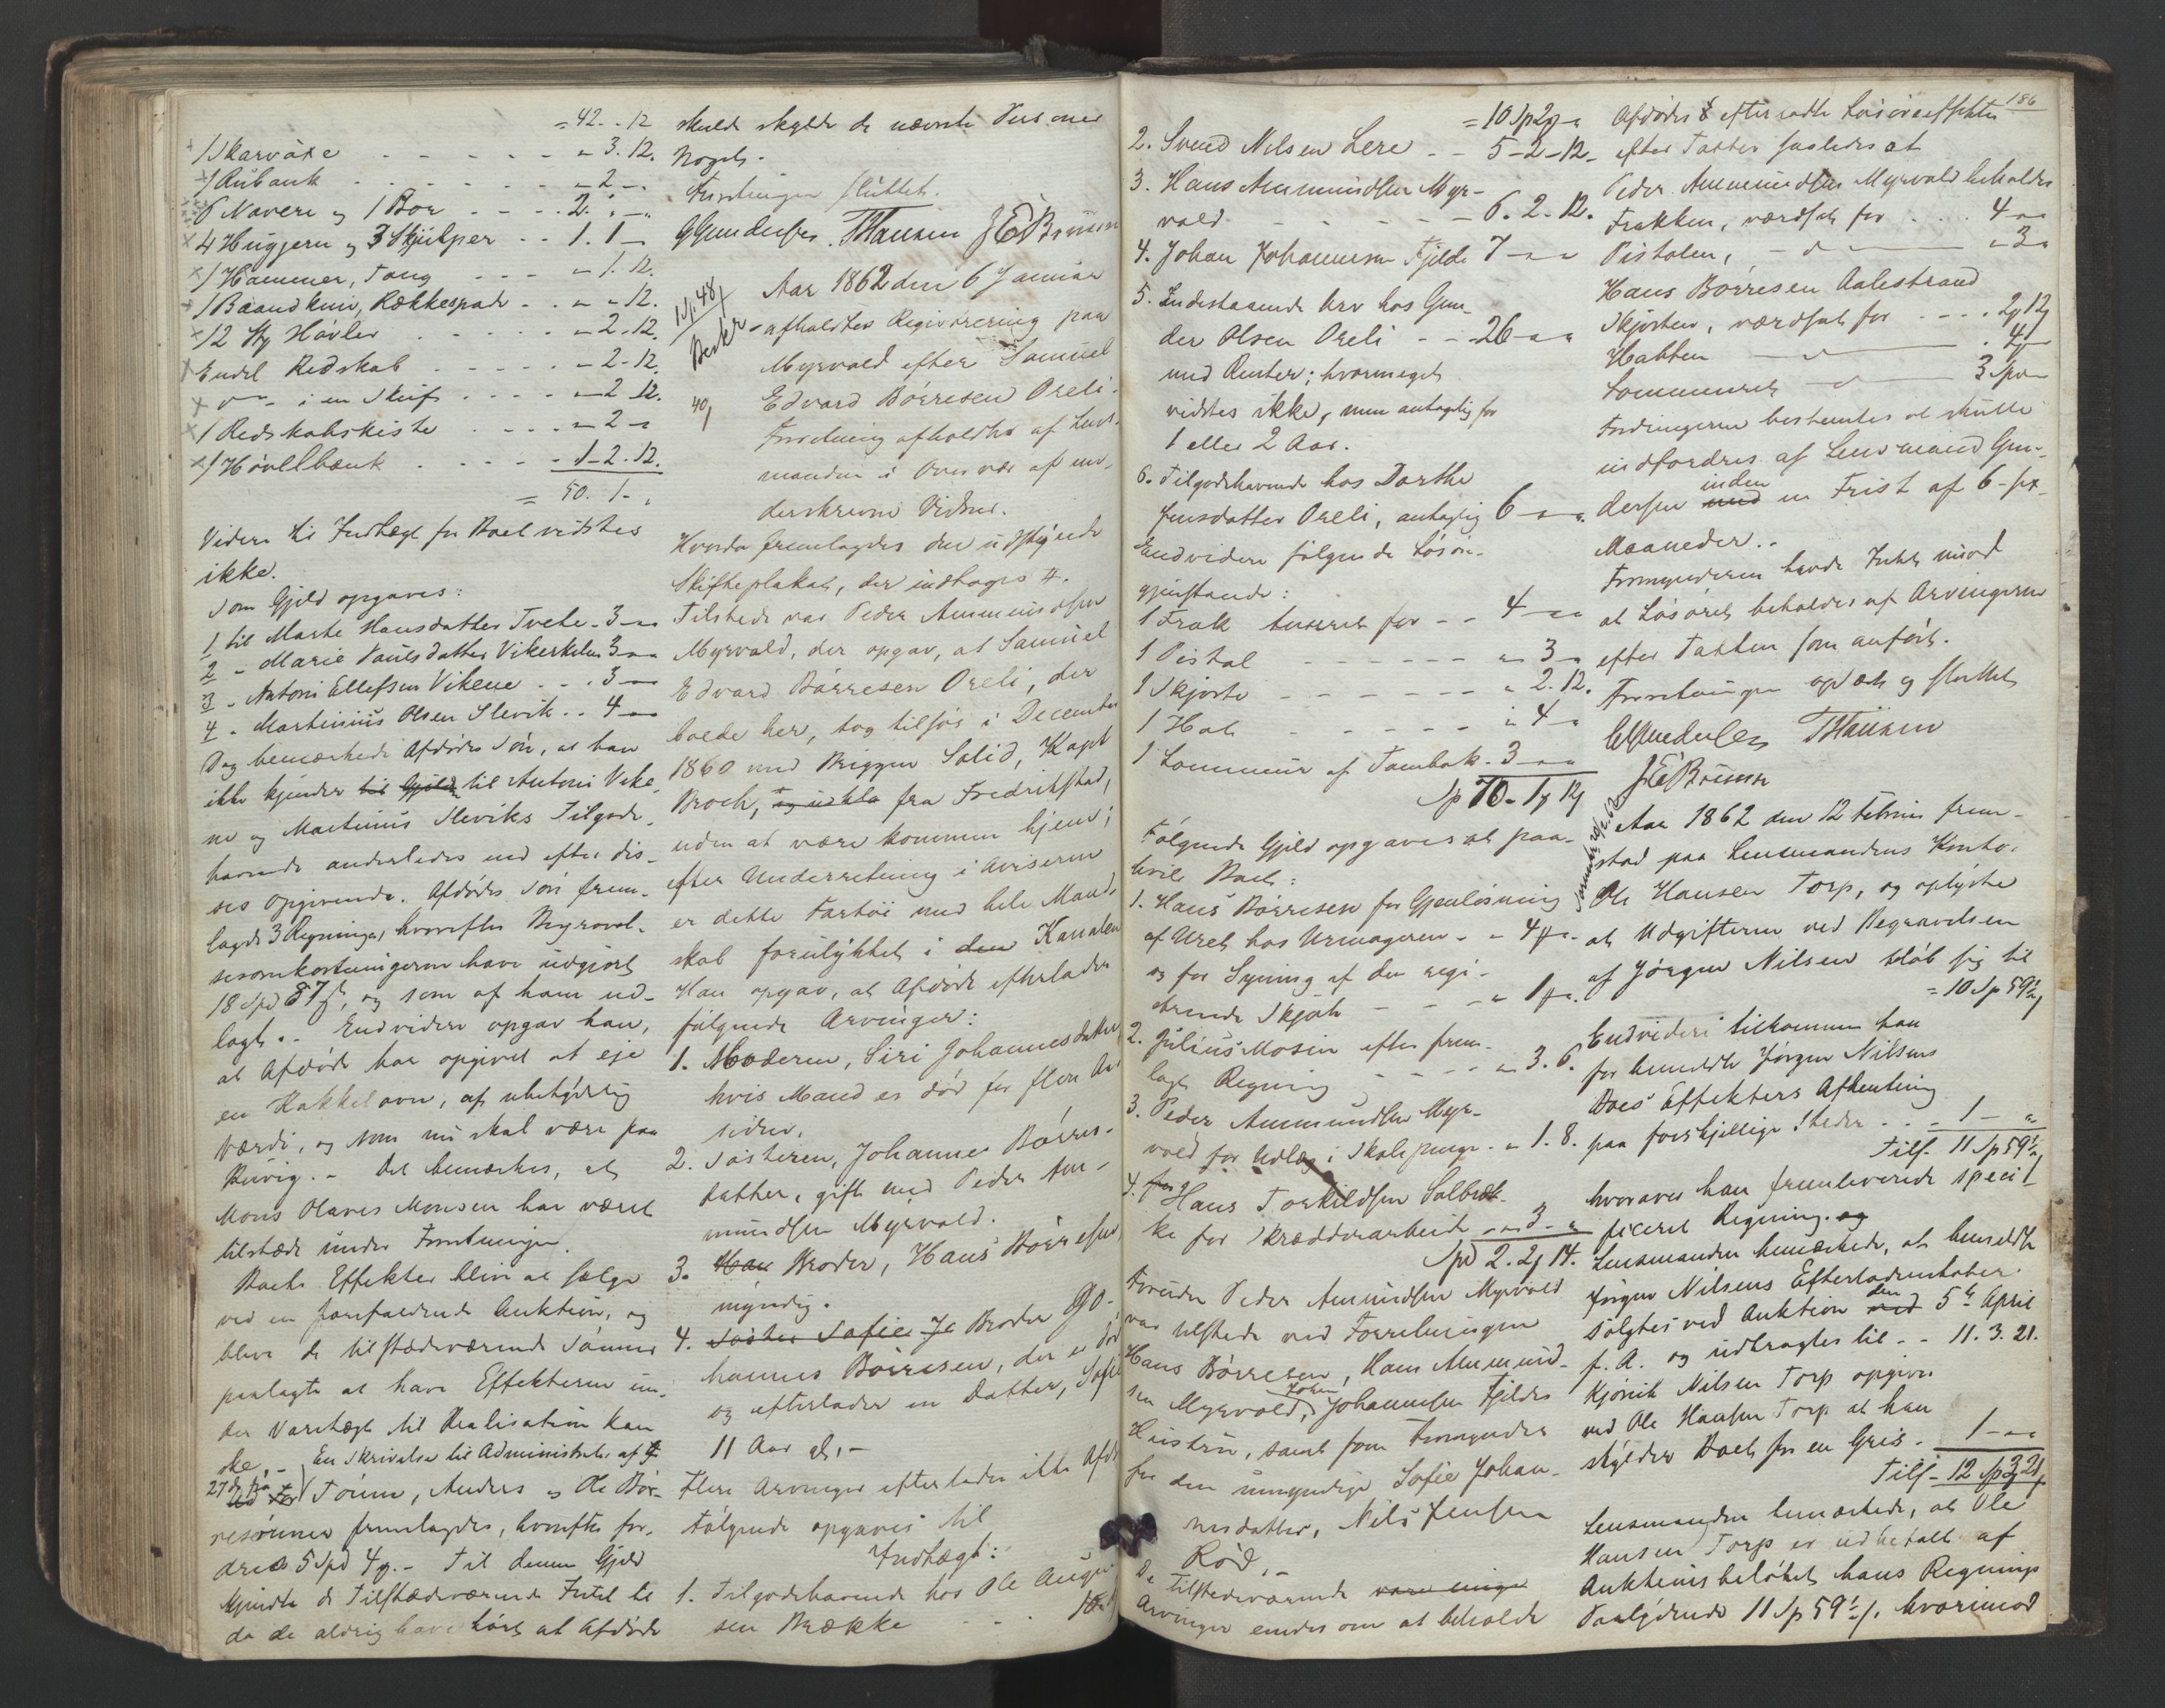 = 42. - 12
1 Skarvøxe - - - - - " 3. 12.
1 Rubank - - - - - " 2 - "
6 Navere og 1 Bor - - - 2. " - "
4 Huggjern og 3 Skjulper - - 1. 1 -
1 Hammer, Tang - - - " 1. 12.
1 Baandkniv, Rækkespade - - " " 12.
12 Stk Høvler - - - - " 2. 12.
Endel Redskab - - - - " 2. 12.
do i en Skuf - - - - " 2. 12.
1 Redskabskiste - - - - " 2 - "
1 Høvlbænk - - - - 1 - 2. 12.
= 50. 1 - "
Videre til Indtægt for Boet vidstes
ikke.
Som Gjeld opgaves:
1 til Marte Hansdatter Tvete - 3 - " "
2 - Marie Poulsdatter Vikerkilen 3 - " "
3 - Antoni Ellefsen Vikene - - 3 - "
4 - Martinius Olsen Slevik - - 4 - " "
Dog bemærkede Afdødes Søn, at han
ikke kjender til Gjeld til Antoni Vike-
ne og Martinius Sleviks Tilgode-
havende anderledes end efter dis-
ses Opgivende. Afdødes Søn frem-
lagde 3 Regninger, hvorefter Begravel-
sesomkostningerne have udgjort
18 Spd 87 s, og som af ham ud-
lagt. - Endvidere opgav han,
at Afdøde har opgivet at eje
en Kakkelovn, af ubetydelig
Værdi, og som nu skal være paa
Buvig. - Det bemærkes, at
Mons Olaves Monsen har været
tilstæde under Forretningen.
Boets Effekter blive at sælge
ved en foranstaltende Auktion, og
bleve de tilstædeværende Sønner
paalagte at have Effekterne un-
der Varetægt til Realisation kan
ske. - En Skrivelse til Administrator af
27de fra Tømme, Anders og Ole Bør-
resønner fremlagdes, hvorefter for-
dres 5 Spd 4 s. - Til denne Gjeld
kjendte de Tilstædeværende Intet til
da de aldrig have hørt at Afdøde
skulde skylde de nævnte Personer
Noget.
Forretningen sluttet.
GGundersen. THansen JEBruun
10/1. 48/
Beskr
40/
Aar 1862 den 6 Januar
afholdtes Registrering paa
Myrvold efter Samuel
Edvard Børresen Oreli.
Forretning afholdtes af Lens-
manden i Overvær af un-
derskrevne Vidner.
Hvorda fremlagdes den udstedende
Skifteplakat, der indtages #.
Tilstede var Peder Ammundsen
Myrvold, der opgav, at Samuel
Edvard Børresen Oreli, der
boede her, tog tilsjøs i December
1860 med Briggen Solid, Kapt
Broch, og udkla fra Fredrikstad,
uden at være kommen hjem;
efter Underretning i Aviserne
er dette Fartøi med hele Mand-
skab forulykket i den Kanalen
Han opgav, at Afdøde efterlader
følgende Arvinger:
1. Moderen, Siri Johannesdatter
hvis Mand er død for flere Aar
siden.
2. Søsteren, Johanne Børres-
datter, gift med Peder Am-
mundsen Myrvold.
3. Han Broder, Hans Børresen
myndig.
4. Søster Sofie Jo Broder Jo-
hannes Børresen, der er død
og efterlader en Datter, Sofie
11 Aar gl. -
Flere Arvinger efterlader ikke Afdøde
Følgende opgaves til
Indtægt:
1. Tilgodehavende hos Ole August-
sen Brække - - 10
186
= 10 Sp 2 s "
2. Svend Nilsen Lere - - 5 - 2 - 12 -
3. Hans Ammundsen Myr-
vold - - - - - 6. 2. 12.
4. Johan Johannesen Fjelde 7 - " "
5. Indestaaende Arv hos Gun-
der Olsen Oreli - - 26 - " "
med Renter; hvormeget
vidstes ikke, men antagelig for
1 eller 2 Aar.
6. Tilgodehavende hos Dorthe
Jensdatter Oreli, antagelig 6 - " "
Endvidere følgende Løsøre-
gjenstande:
1 Frak taxeret for - - 4 - " "
1 Pistol - - - - - " 3 "
1 Skjorte - - - - - " 2. 12.
1 Hat - - - - - " 4 - "
1 Lommeur af Tombak - 3 - " "
Sp 70 - 1 s 12 s
Følgende Gjeld opgaves at paa-
hvile Boet:
1. Hans Børresen for Gjenløsning
af Uret hos Urmageren - " 4 s " -
og for Syning af den regi-
strerede Skjorte - - - " 1 s " .
2. Julius Mosin efter frem-
lagt Regning - - - - " 3. 6.
3. Peder Ammundsen Myr-
vold for Udlæg i Skatepenge - " 1. 8.
4. for Hans Torkildsen Solbræk-
ke for Skrædderarbeide - " 3 - "
Spd 2. 2 s 14.
Foruden Peder Ammundsen Myrvold
var tilstede ved Forretningen
Hans Børresen, Hans Ammund-
sen Myrvold, Johan Johannesen Fjeldes
Hustru, samt som Formynder
for den umyndige Sofie Johan-
nesdatter, Nils Jensen
Rød. -
De Tilstedeværende vare enige
Arvinger enedes om at beholde
Afdødes efterladte Løsøreeffekter
efter Taxten saaledes at
Peder Ammundsen Myrvold beholder
Frakken, værdsat for - - 4 - "
Pistolen, - do - " 3 "
Hans Børresen Aalestrand
Skjorten, værdsat for - - - 2 s 12 s
Hatten - do - . 4 s
Lommeuret - do - 3 Spd
Fordringerne bestemtes at skulle
indfordres af Lensmand Gun-
dersen med inden en Frist af 6 - sex
Maaneder. -
Formynderen havde Intet imod
at Løsøret beholdes af Arvingerne
efter Taxten som anført.
Forretningen oplæst og sluttet
GGundersen THansen
JEBruun
Aar 1862 den 12 Februar frem-
stod paa Lensmandens Kontor
Ole Hansen Torp, og oplyste
at Udgifterne ved Begravelsen
af Jørgen Nilsen beløb sig til
= 10 Sp 59 ½ s
Endvidere tilkommer han
for bemeldte Jørgen Nilsens
Boes Effekters Afhentning
paa forskjellige Steder - - - 1 - "
Tils. 11 Sp 59 ½
hvoraver han fremleverede speci-
ficeret Regning. og
Lensmanden bemærkede, at bemeldte
Jørgen Nilsens Efterladenskaber
solgtes ved Auktion ved den 5te April
f. A. og udbragtes til - - 11. 3. 21.
Kjønik Nilsen Torp opgiver
ved Ole Hansen Torp at han
skylder Boet for en Gris - 1 - " "
Tils - 12 Sp 3 s 21 s
Lensmanden bemærkede, at Ole
Hansen Torp er udbetalt af
Auktionsbeløbet hans Regnings
Paalydende 11 Sp 59 ½ s. hvorimod